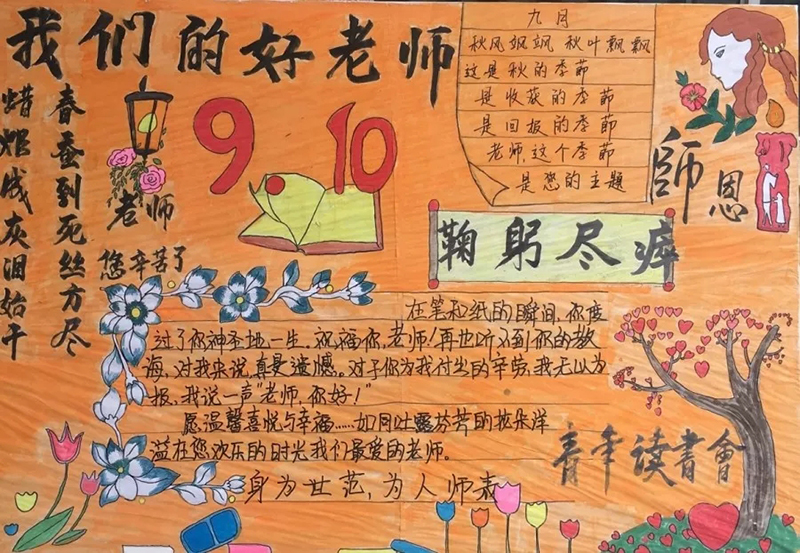 我们的好老师
春蚕到死丝方尽
蜡炬成灰泪始干
9 10
老师
您辛苦了
九月
秋风飒飒 秋叶飘飘
这是秋的季節
是收获的季節
是回报的季節
老师,这个季節
是您的主题
師恩
鞠躬尽瘁
在笔和纸的瞬间,你度
过了你神圣地一生,祝福你,老师!再也听不到你的教
诲,对我来说,真是遗憾。对于你为我付出的辛劳,我无以为
报,我说一声“老师,你好!”
愿温馨喜悦与幸福……如同吐露芬芳的花朵洋
溢在您欢乐的时光我们最爱的老师。
身为世范,为人师表
青年读書會